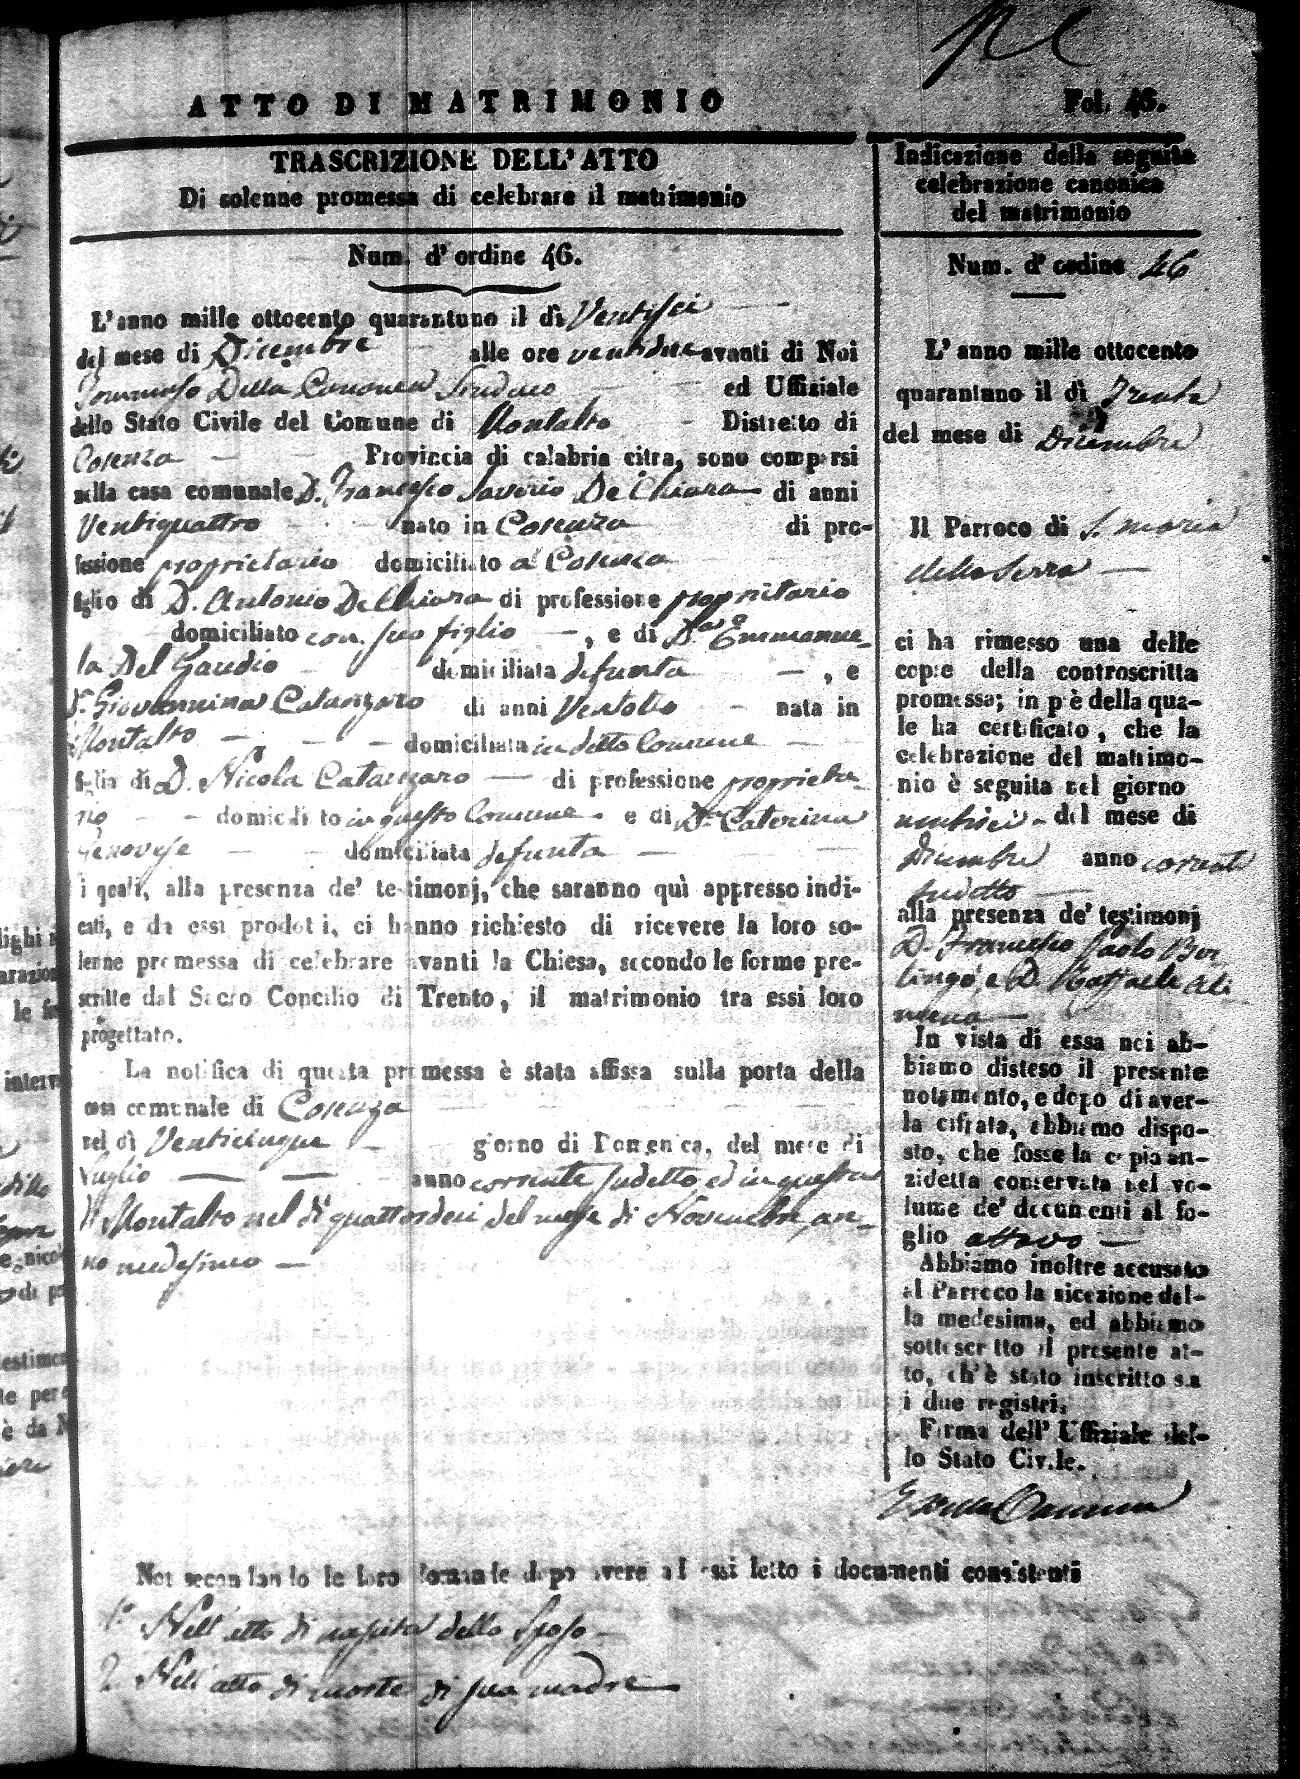 ATTO DI MATRIMONIO
Fol. 46.
TRASCRIZIONE DELL' ATTO
Di solenne promessa di celebrare il matrimonio
Num. d' ordine 46.
L'anno mille ottocento quarantuno il dì Ventisei
del mese di Dicembre alle ore ventidue avanti di Noi
Tommaso Della Cananea Sindaco ed Uffiziale
dello Stato Civile del Comune di Montalto Distretto di
Cosenza Provincia di calabria citra, sono comparsi
nella casa comunale D. Francesco Saverio De Chiara di anni
Ventiquattro nato in Cosenza di pro-
fessione proprietario domiciliato a Cosenza
figlio di D. Antonio De Chiara di professione proprietario
domiciliato con suo figlio, e di Da. Emmanue
la Del Gaudio domiciliata defunta, e
Da. Giovannina Catanzaro di anni Ventotto nata in
Montalto domiciliata in detto Comune
figlia di D. Nicola Catanzaro di professione proprieta
rio domiciliato in questo Comune e di Da. Caterina
Genovese domiciliata defunta
i quali, alla presenza de' testimonj, che saranno quì appresso indi-
cati, e da essi prodotti, ci hanno richiesto di ricevere la loro so-
lenne promessa di celebrare avanti la Chiesa, secondo le forme pre-
scritte dal Sacro Concilio di Trento, il matrimonio tra essi loro
progettato.
La notifica di questa promessa è stata affissa sulla porta della
casa comunale di Cosenza
nel dì Venticinque giorno di Domenica, del mese di
Luglio anno corrente sudetto ed in questa
di Montalto nel dì quattordeci del mese di Novembre an-
no medesimo
Noi secondando le loro domande dopo avere ad essi letto i documenti consistenti
1. Nell' atto di nascita dello Sposo
2. Nell' atto di morte di sua madre
Indicazione della seguita
celebrazione canonica
del matrimonio
Num. d' ordine 46
L'anno mille ottocento
quarantuno il dì Trenta
del mese di Dicembre
Il Parroco di S. Maria
della Serra
ci ha rimesso una delle
copie della controscritta
promessa; in piè della qua-
le ha certificato, che la
celebrazione del matrimo-
nio è seguita nel giorno
ventisei del mese di
Dicembre anno corrente
sudetto
alla presenza de' testimonj
D. Francesco Paolo Ber
lingò, e D. Raffaele Ali
mena
In vista di essa noi ab-
biamo disteso il presente
notamento, e dopo di aver-
la cifrata, abbiamo dispo-
sto, che fosse la copia an-
zidetta conservata nel vo-
lume de' documenti al fo-
glio ottavo
Abbiamo inoltre accusato
al Parroco la ricezione del-
la medesima, ed abbiamo
sottoscritto il presente at-
to, ch'è stato inscritto su
i due registri.
Firma dell' Uffiziale del-
lo Stato Civile.